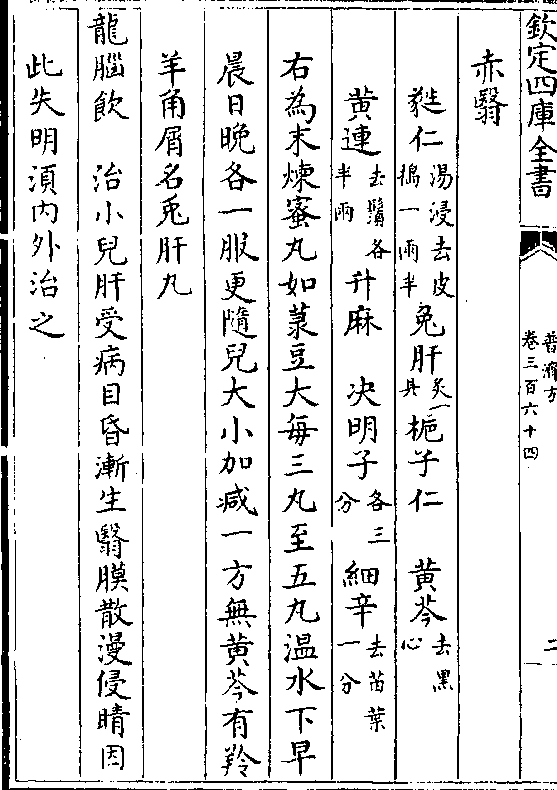 欽定四庫全書
普濟方
卷三百六十四
二
赤翳
蕤仁湯浸去皮搗一兩半兔肝炙一具梔子仁 黃芩去黑心
黄連去鬚各半兩升麻 决明子各三分 細辛去苗葉一分
右為末煉蜜丸如菉豆大每三丸至五丸温水下早
晨日晚各一服更隨兒大小加减一方無黄芩有羚
羊角屑名兎肝丸
龍腦飲 治小兒肝受病目昏漸生翳膜散漫侵睛因
此失明湏内外治之